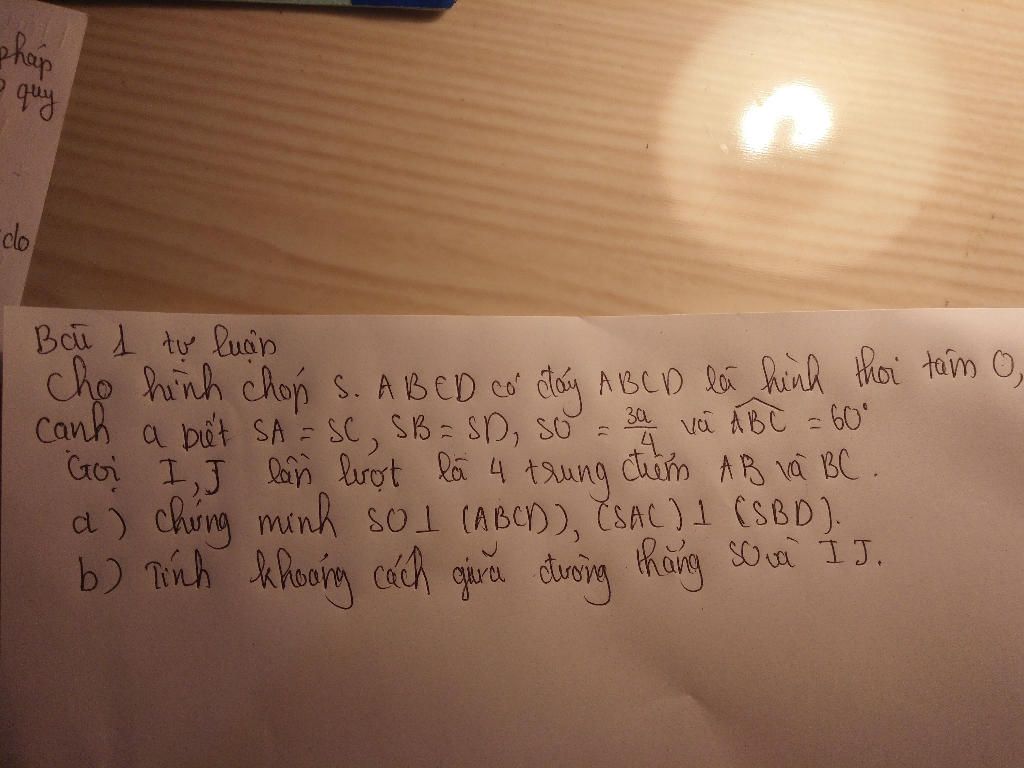 pháp
quy
do
Bài 1 tự luận
Cho hình chóp S. ABCD có đáy ABCD là hình thoi tâm O,
cạnh a biết SA = SC, SB = SD, SO = 3a/4 và ABC = 60°
Gọi I, J lần lượt là 4 trung điểm AB và BC.
a) chứng minh SO ⊥ (ABCD), (SAC) ⊥ (SBD).
b) Tính khoảng cách giữa đường thẳng SO và IJ.